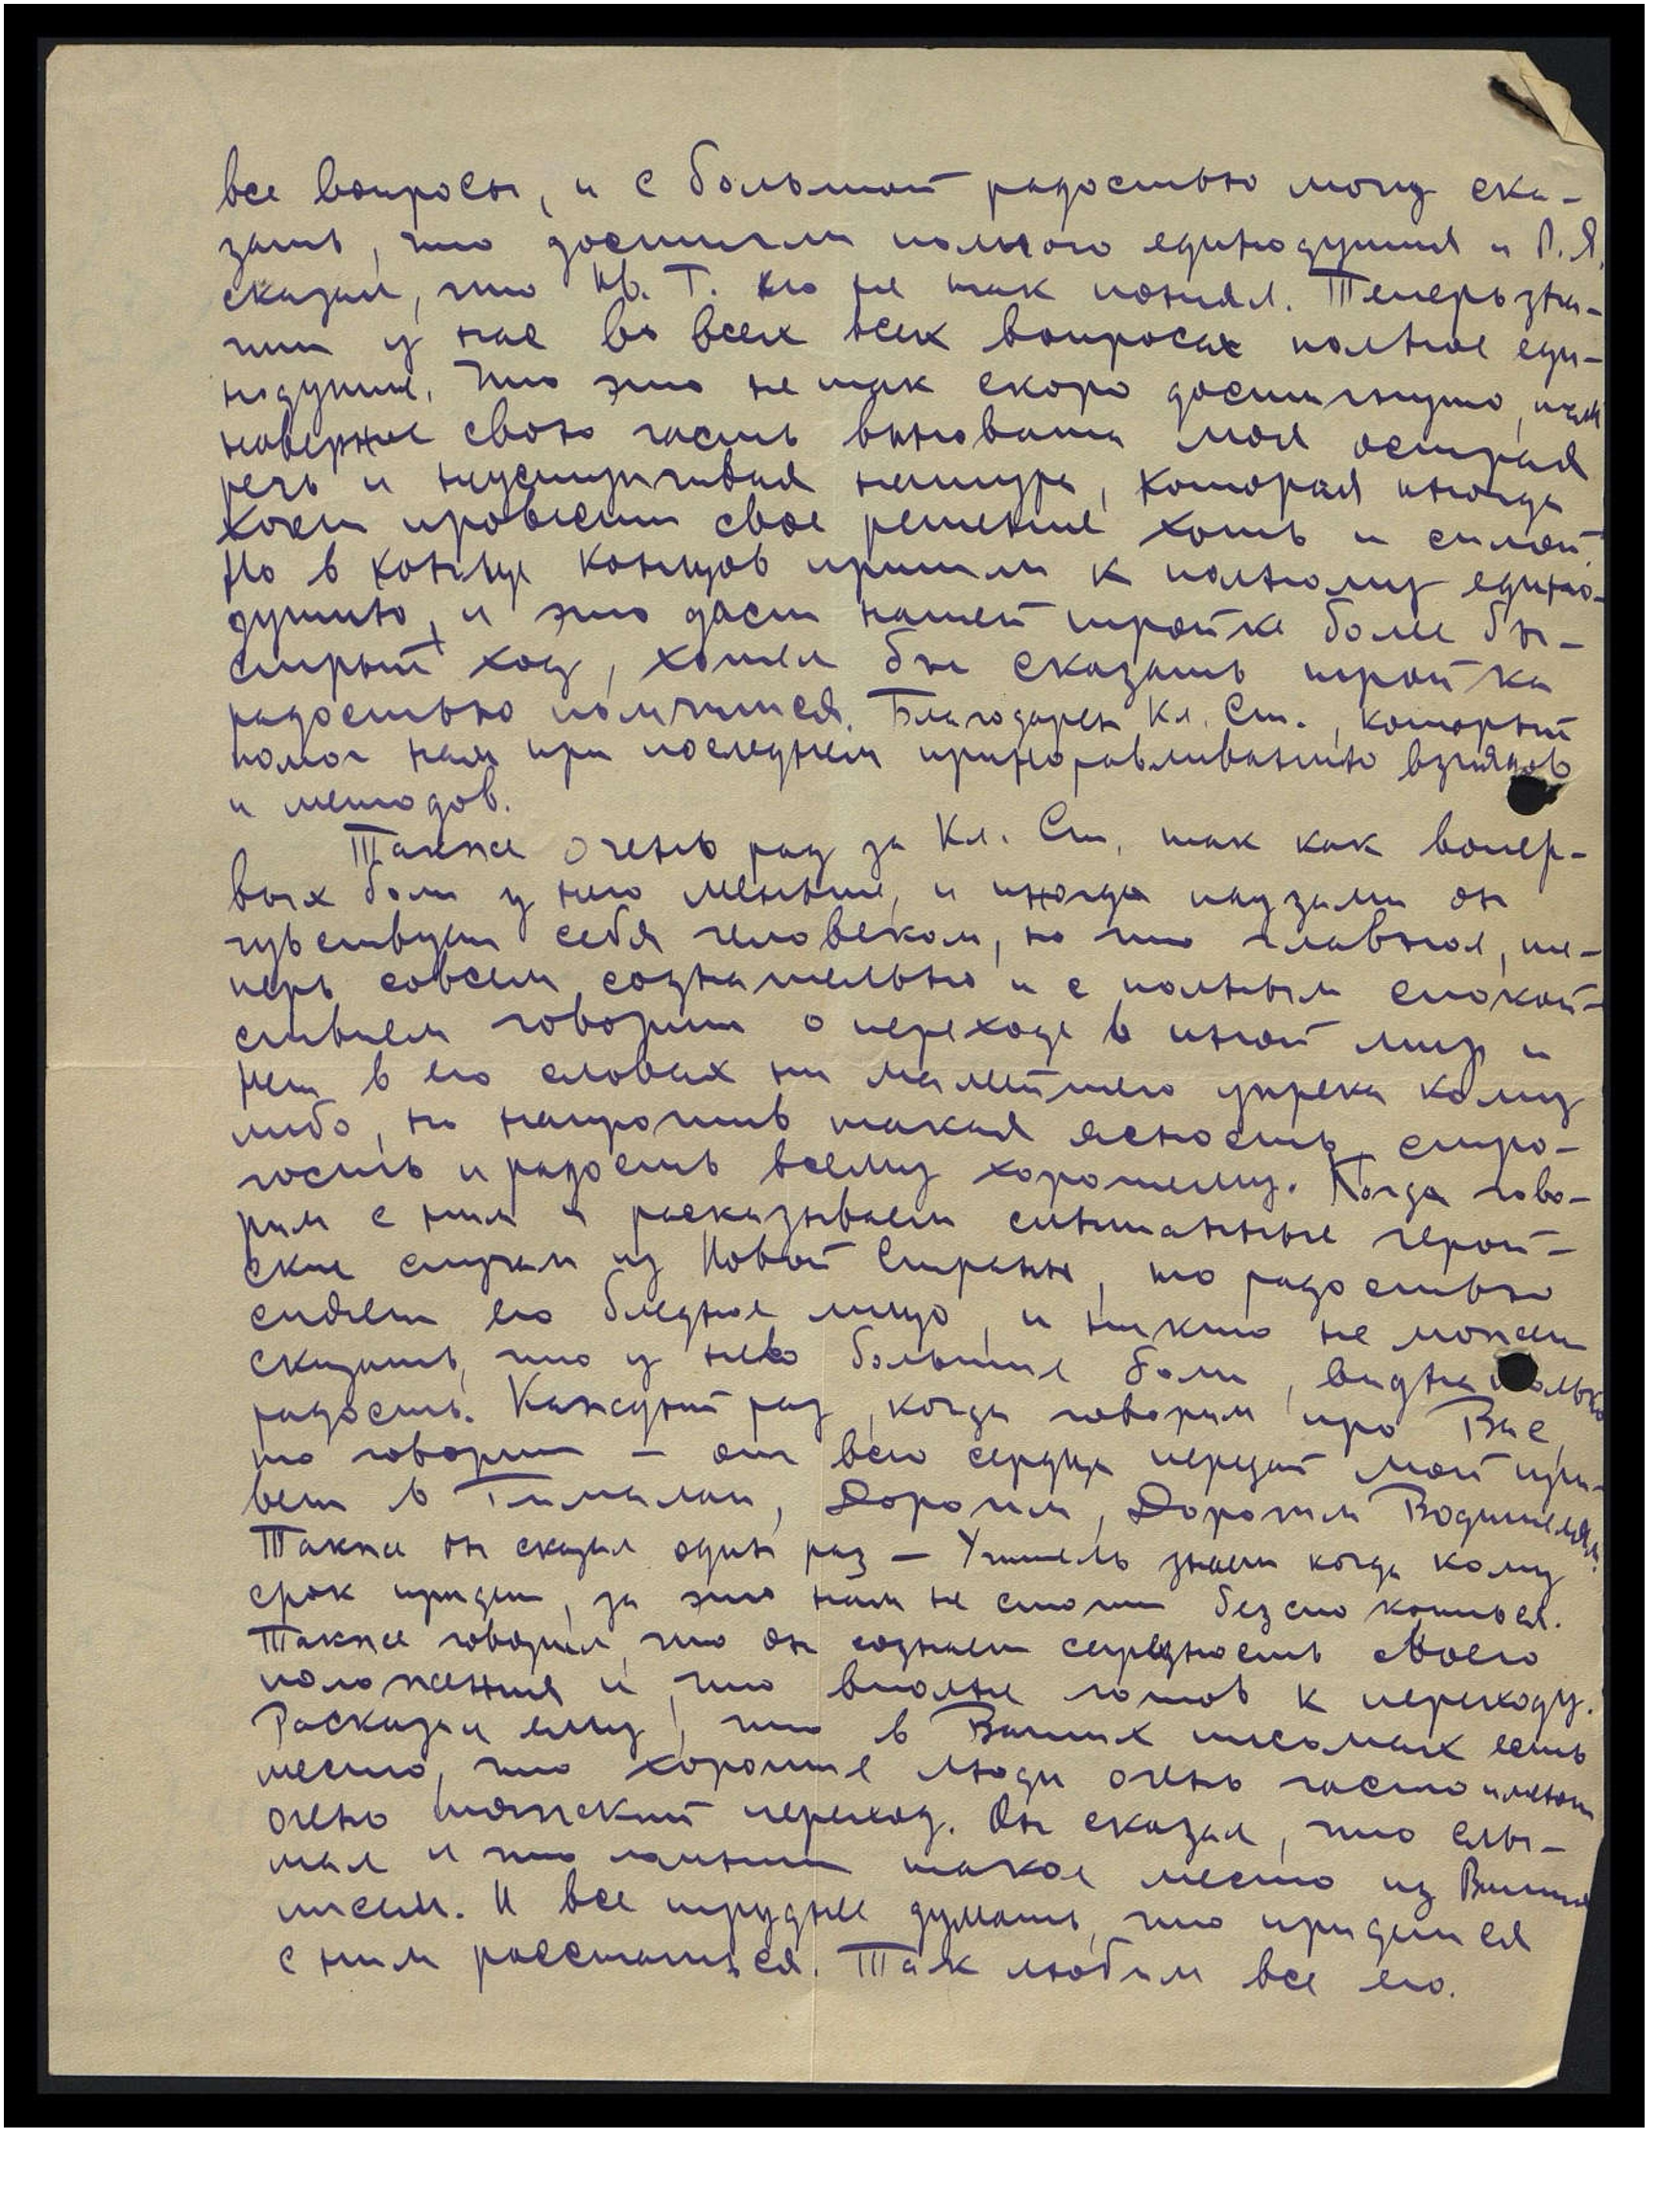 все вопросы, и с большой радостью могу ска-
зать, что достигли полного единодушия и Р.Я.
сказал, что Ив. Г. его не так понял. Теперь зна-
чит у нас во всех всех вопросах полное еди-
нодушие. Что это не так скоро достигнуто,
наверное свою часть виновата моя острая
речь и неуступчивая натура, которая иногда
хочет провести свое решение хоть и силой.
Но в конце концов пришли к полному едино-
душию, и это даст нашей тройке более бы-
стрый ход, хотел бы сказать тройка
радостью помчится. Благодарен Кл. Ст., который
помог нам при последнем приноравливанию взглядов
и методов.
Также очень рад за Кл. Ст, так как вопер-
вых боли у него меньше, и иногда паузами он
чувствует себя человеком, но что главное, те-
перь совсем сознательно и с полным спокой-
ствием говорит о переходе в иной мир и
нет в его словах ни малейшего упрека кому
либо, но напротив такая ясность, стро-
гость и радость всему хорошему. Когда гово-
рим с ним и расказываем слышанные герой-
ские случаи из Новой Страны, то радостью
сияет его бледное лицо, и никто не может
сказать, что у него большие боли, видна только
радость. Каждый раз, когда говорим про Вас,
то говорит – от всего сердца передай мой при-
вет в Гималаи, Дорогим, Дорогим Водителям.
Также он сказал один раз – Учитель знает когда кому
срок придет, за это нам не стоит безспокоиться.
Также говорил, что он сознает серьезность своего
положения и что вполне готов к переходу.
Расказал ему, что в Ваших письмах есть
место, что хорошие люди очень часто имеют
очень тяжский переход. Он сказал, что слы-
шал и что помнит такое место из Ваших
писем. И все труднее думать, что придется
с ним расстаться. Так любим все его.